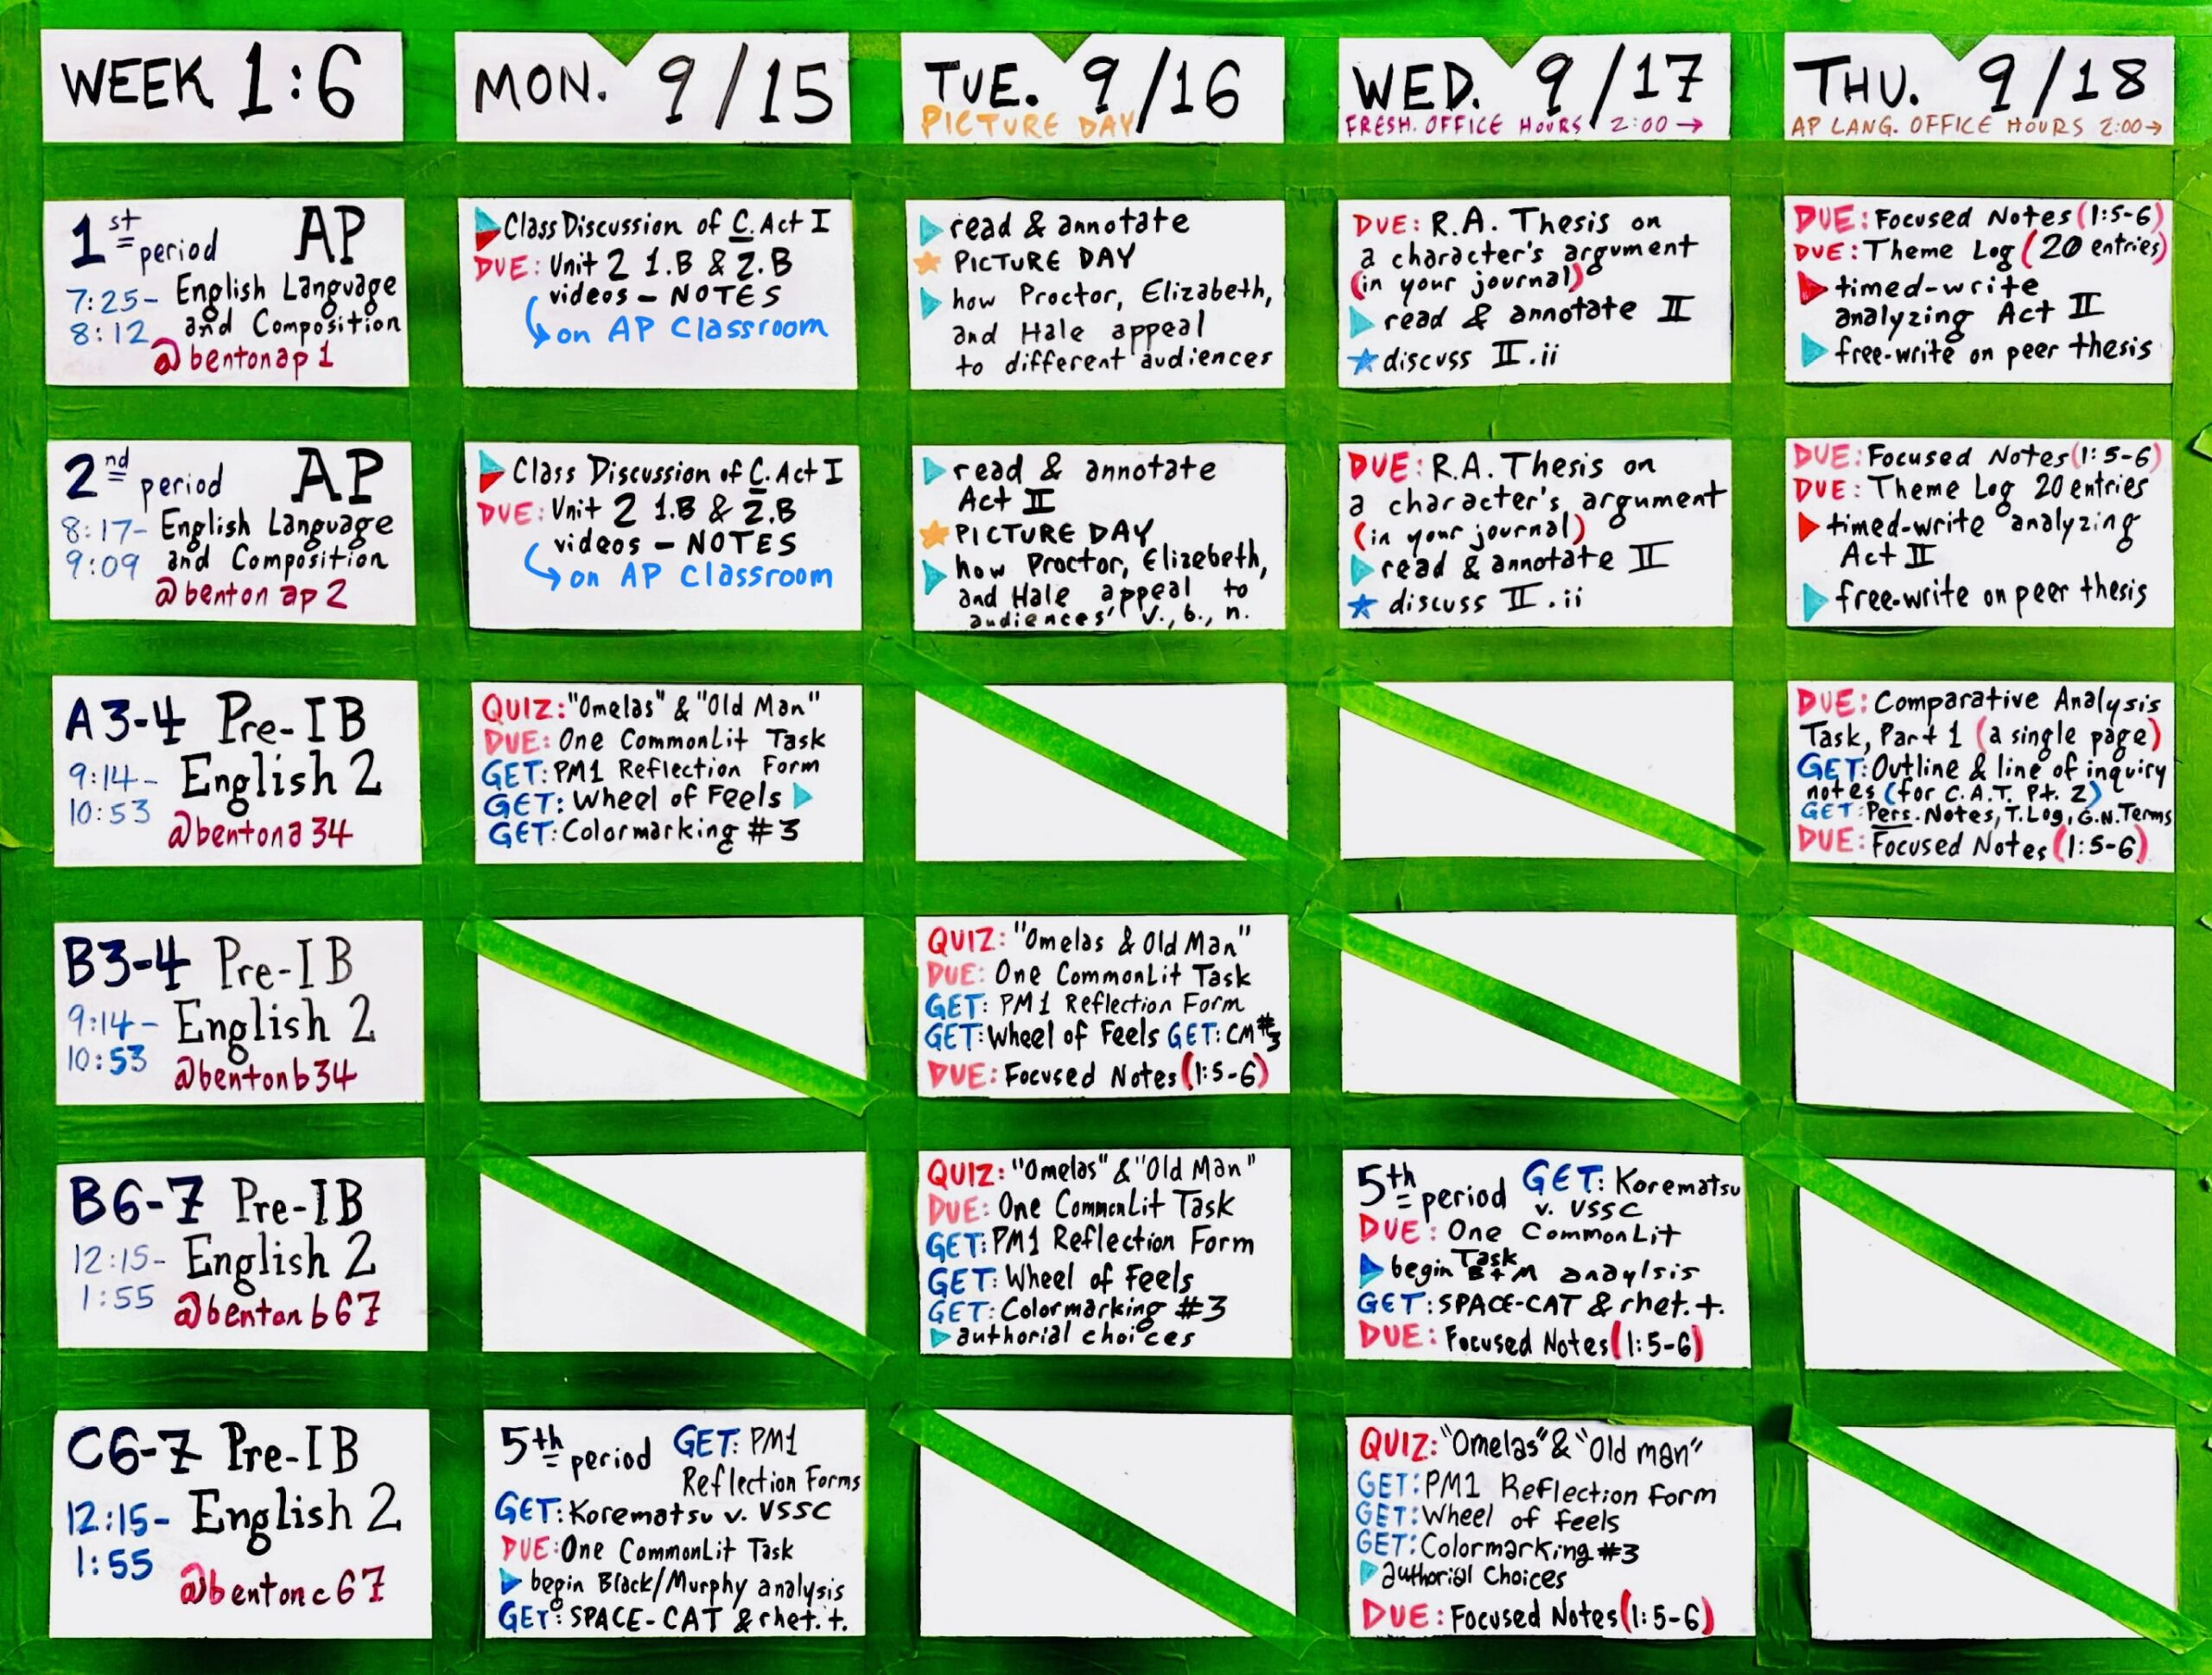 WEEK 1:6
MON. 9/15
TUE. 9/16
PICTURE DAY
WED. 9/17
FRESH. OFFICE HOURS 2:00 →
THU. 9/18
AP LANG. OFFICE HOURS 2:00→
1st period AP
7:25- English Language
8:12 and Composition
@bentonap1
Class Discussion of C. Act I
DUE: Unit 2 1.B & 2.B
videos - NOTES
on AP Classroom
read & annotate
PICTURE DAY
how Proctor, Elizabeth,
and Hale appeal
to different audiences
DUE: R.A. Thesis on
a character's argument
(in your journal)
read & annotate II
discuss II.ii
DUE: Focused Notes (1:5-6)
DUE: Theme Log (20 entries)
timed-write
analyzing Act II
free-write on peer thesis
2nd period AP
8:17- English Language
9:09 and Composition
@bentonap2
Class Discussion of C. Act I
DUE: Unit 2 1.B & 2.B
videos - NOTES
on AP Classroom
read & annotate
Act II
PICTURE DAY
how Proctor, Elizebeth,
and Hale appeal to
audiences' v., b., n.
DUE: R.A. Thesis on
a character's argument
(in your journal)
read & annotate II
discuss II.ii
DUE: Focused Notes (1:5-6)
DUE: Theme Log 20 entries
timed-write analyzing
Act II
free-write on peer thesis
A3-4 Pre-IB
9:14- English 2
10:53
@bentona34
QUIZ: "Omelas" & "Old Man"
DUE: One CommonLit Task
GET: PM1 Reflection Form
GET: Wheel of Feels
GET: Colormarking #3
DUE: Comparative Analysis
Task, Part 1 (a single page)
GET: Outline & line of inquiry
notes (for C.A.T. Pt. 2)
GET: Pers. Notes, T.Log, G.N.Terms
DUE: Focused Notes (1:5-6)
B3-4 Pre-IB
9:14- English 2
10:53
@bentonb34
QUIZ: "Omelas & Old Man"
DUE: One CommonLit Task
GET: PM1 Reflection Form
GET: Wheel of Feels GET: CM #3
DUE: Focused Notes (1:5-6)
B6-7 Pre-IB
12:15- English 2
1:55
@bentonb67
QUIZ: "Omelas" & "Old Man"
DUE: One CommonLit Task
GET: PM1 Reflection Form
GET: Wheel of Feels
GET: Colormarking #3
authorial choices
5th period GET: Korematsu
v. VSSC
DUE: One CommonLit
Task
begin B+M anaylsis
GET: SPACE-CAT & rhet. t.
DUE: Focused Notes (1:5-6)
C6-7 Pre-IB
12:15- English 2
1:55
@bentonc67
5th period GET: PM1
Reflection Forms
GET: Korematsu v. VSSC
DUE: One CommonLit Task
begin Black/Murphy analysis
GET: SPACE-CAT & rhet. t.
QUIZ: "Omelas" & "Old man"
GET: PM1 Reflection Form
GET: Wheel of feels
GET: Colormarking #3
authorial choices
DUE: Focused Notes (1:5-6)